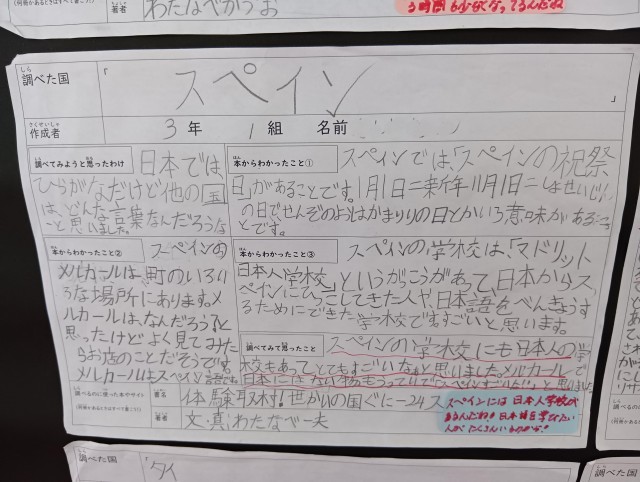 著者 わたなべかずお
3時間も少なくなってるんだね
調べた国 「スペイン」
作成者 3年 1組 名前
調べてみようと思ったわけ
日本では、
ひらがなだけど他の国
は、どんな言葉なんだろうな
と思いました。
本からわかったこと①
スペインでは、「スペインの祝祭
日」があることです。1月1日=新年11月1日=しょせいじん
の日でせんぞのおはかまいりの日とかいう意味があるこ
とです。
本からわかったこと②
スペインの
メルカールは、町のいろい
ろな場所にあります。メ
ルカールは、なんだろう?と
思ったけどよく見てみた
らお店のことだそうです。
メルカールはスペイン語です。
本からわかったこと③
スペインの学校は、「マドリット
日本人学校」というがっこうがあって、日本からス
ペインにひっこしてきた人や、日本語をべんきょうす
るためにできた学校ですごいと思います。
調べてみて思ったこと
スペインの学校にも日本人の学
校もあってとてもすごいなぁと思いました。メルカール
日本にはない物もうっていて
調べるのに使った本やサイト
書名 体験取材!世かいの国ぐに-24ス
著者 文・真 わたなべ一夫
スペインには日本人学校が
あるんだね!日本語を学びたい
人がたくさんいるのかな?
調べた国 「タイ